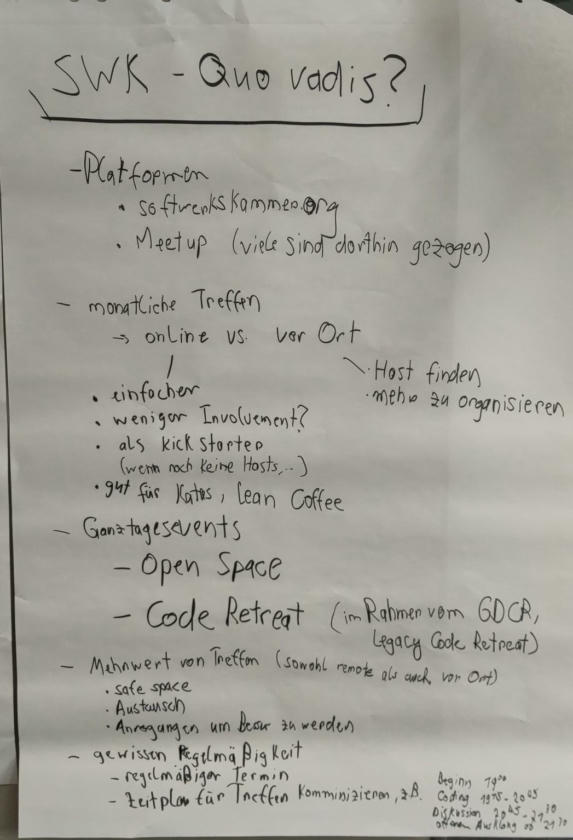 SWK - Quo vadis?
- Platformen
• softwerkskammer.org
• Meetup (viele sind dorthin gezogen)
- monatliche Treffen
→ online vs. vor Ort
• Host finden
• mehr zu organisieren
• einfacher
• weniger Involvement?
• als kick starter
(wenn noch keine Hosts,..)
• gut für Katas, Lean Coffee
- Ganztagesevents
- Open Space
- Code Retreat (im Rahmen vom GDCR,
Legacy Code Retreat)
- Mehrwert von Treffen (sowohl remote als auch vor Ort)
• safe space
• Austausch
• Anregungen um besser zu werden
- gewissen Regelmäßigkeit
- regelmäßiger Termin
- Zeitplan für Treffen kommunizieren, z.B.
Beginn 19°°
Coding 19¹⁵-20⁴⁵
Diskussion 20⁴⁵-21³⁰
offener Ausklang ab 21³⁰